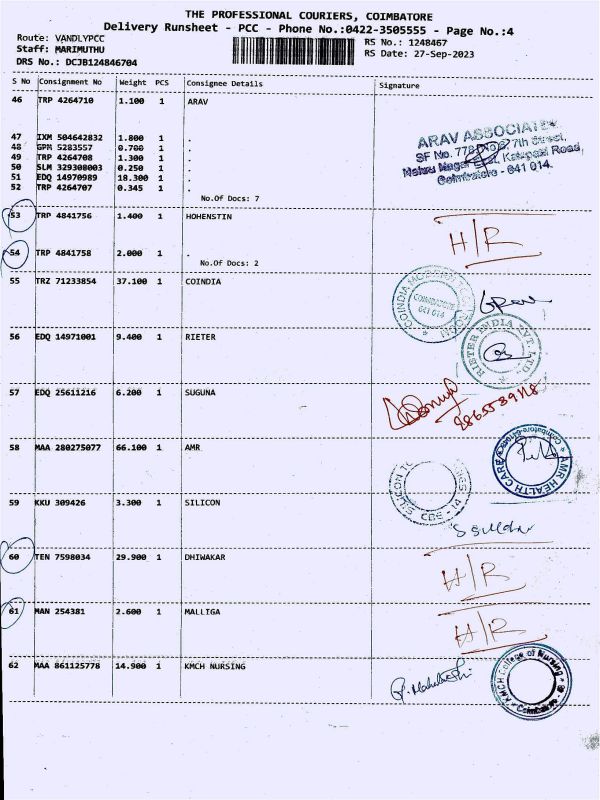 THE PROFESSIONAL COURIERS, COIMBATORE
Delivery Runsheet - PCC - Phone No.:0422-3505555 - Page No.:4
Route: VANDLYPCC
Staff: MARIMUTHU
DRS No.: DCJB124846704
RS No.: 1248467
RS Date: 27-Sep-2023
S No Consignment No Weight PCS Consignee Details Signature
46 TRP 4264710 1.100 1 ARAV
47 IXM 504642832 1.800 1 .
48 GPM 5283557 0.700 1 .
49 TRP 4264708 1.300 1 .
50 SLM 329308003 0.250 1 .
51 EDQ 14970989 18.300 1 .
52 TRP 4264707 0.345 1 .
No.Of Docs: 7
ARAV ASSOCIATES
SF No. 778, 7th Street,
Nehru Nagar East, Kalapatti Road,
Coimbatore - 641 014.
53 TRP 4841756 1.400 1 HOHENSTIN
H/R
54 TRP 4841758 2.000 1 .
No.Of Docs: 2
55 TRZ 71233854 37.100 1 COINDIA
COIMBATORE
641 014
56 EDQ 14971001 9.400 1 RIETER
RIETER INDIA PVT. LTD
57 EDQ 25611216 6.200 1 SUGUNA
58 MAA 280275077 66.100 1 AMR
AMR HEALTH CARE
59 KKU 309426 3.300 1 SILICON
SILICON
CBE - 14
60 TEN 7598034 29.900 1 DHIWAKAR
H/R
61 MAN 254381 2.600 1 MALLIGA
H/R
62 MAA 861125778 14.900 1 KMCH NURSING
KMCH College of Nursing
Coimbatore